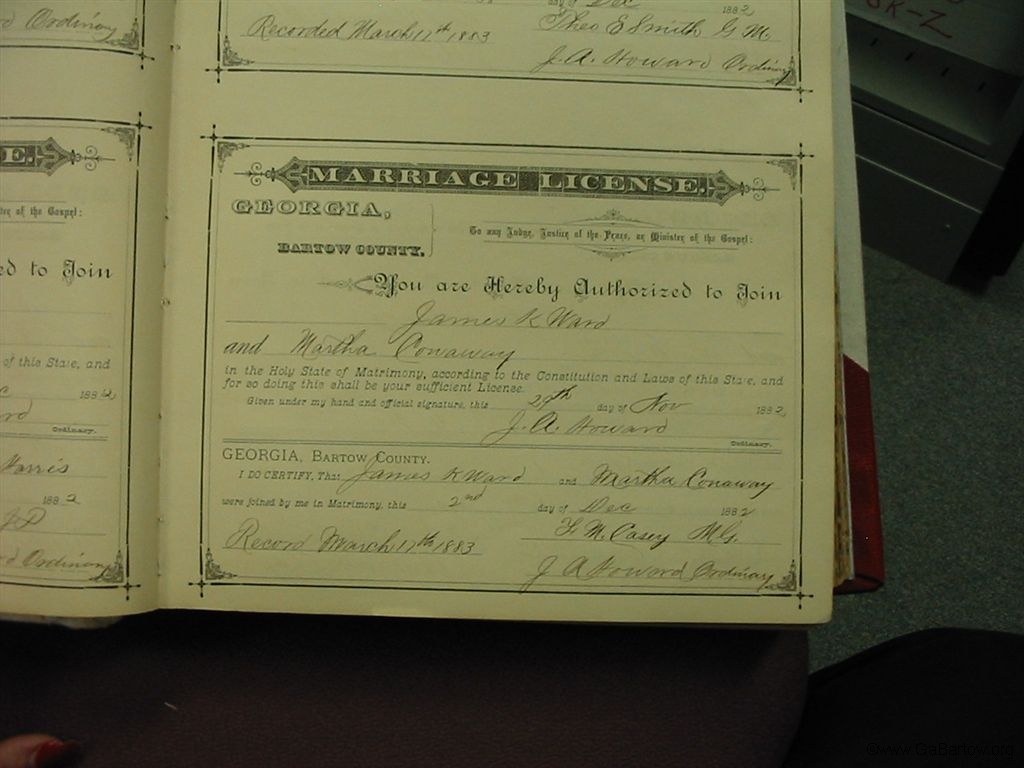 Ordinary
E.
ter of the Gospel:
ed to Join
of this State, and
1882
rd
Ordinary.
Harris
1882
JP
d Ordinary
day of Dec 1882
Recorded March 17th 1883
Theo E Smith G M
J. A. Howard Ordinary
MARRIAGE LICENSE.
GEORGIA,
BARTOW COUNTY.
To any Judge, Justice of the Peace, or Minister of the Gospel:
You are Hereby Authorized to Join
James K Ward
and Martha Conaway
in the Holy State of Matrimony, according to the Constitution and Laws of this State, and
for so doing this shall be your sufficient License.
Given under my hand and official signature, this 29th day of Nov 1882
J. A. Howard
Ordinary.
GEORGIA, BARTOW COUNTY.
I DO CERTIFY, That James K Ward and Martha Conaway
were joined by me in Matrimony, this 2nd day of Dec 1882
F. M. Casey MG.
Record March 17th 1883
J A Howard Ordinary
R-Z
©www.GaBartow.org